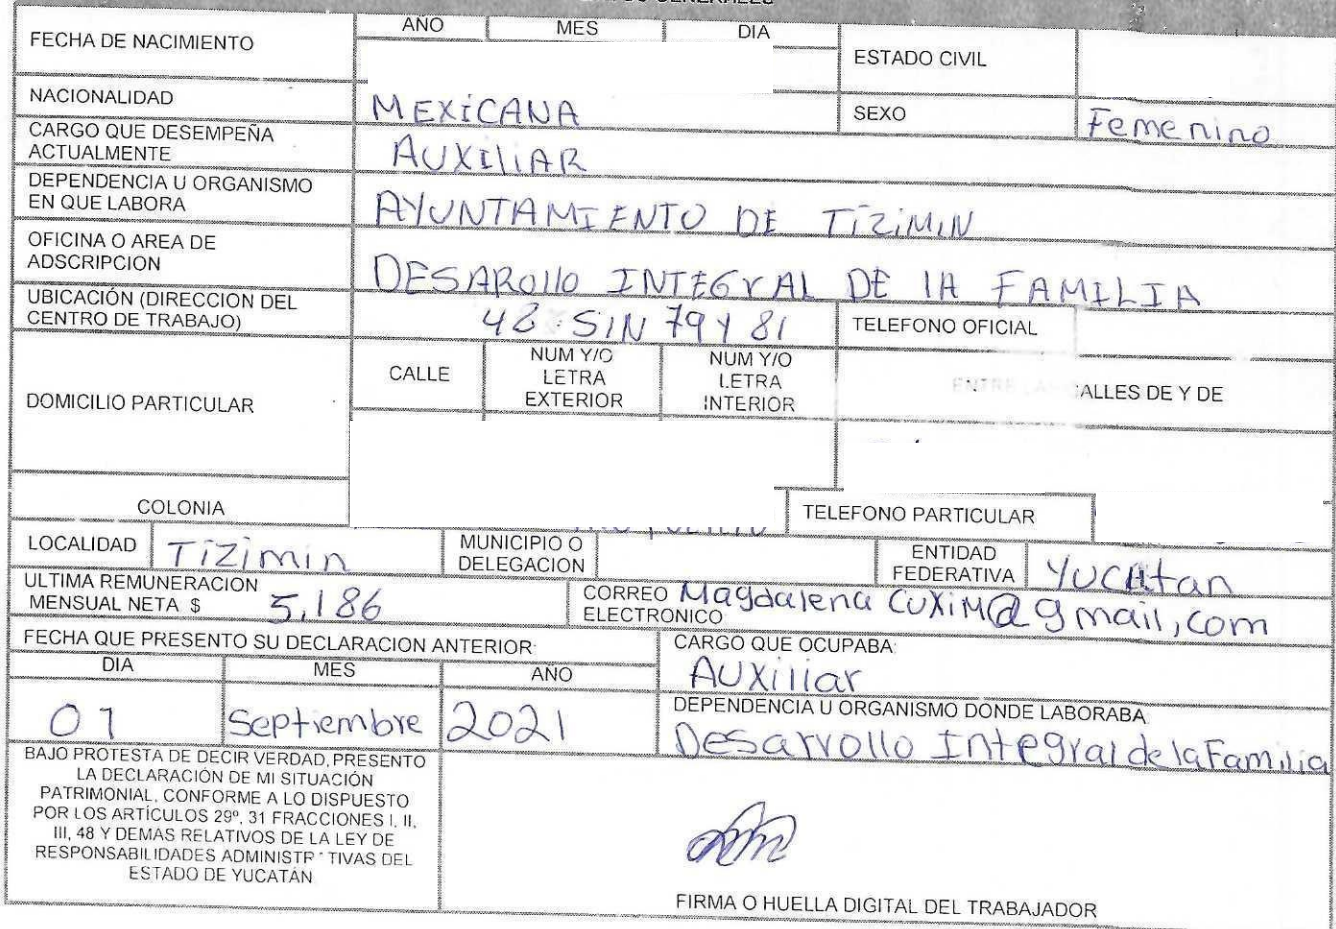 GENERALES
FECHA DE NACIMIENTO
AÑO MES DIA
ESTADO CIVIL
NACIONALIDAD
MEXICANA
SEXO
Femenino
CARGO QUE DESEMPEÑA
ACTUALMENTE
AUXILIAR
DEPENDENCIA U ORGANISMO
EN QUE LABORA
AYUNTAMIENTO DE TIZIMIN
OFICINA O AREA DE
ADSCRIPCION
DESAROllO INTEGRAL DE lA FAMILIA
UBICACIÓN (DIRECCION DEL
CENTRO DE TRABAJO)
48 SIN 79 Y 81
TELEFONO OFICIAL
DOMICILIO PARTICULAR
CALLE
NUM Y/O
LETRA
EXTERIOR
NUM Y/O
LETRA
INTERIOR
ENTRE LAS CALLES DE Y DE
COLONIA
TELEFONO PARTICULAR
LOCALIDAD
Tizimin
MUNICIPIO O
DELEGACION
ENTIDAD
FEDERATIVA
Yucatan
ULTIMA REMUNERACION
MENSUAL NETA $
5,186
CORREO
ELECTRONICO
Magdalena CUXiM@gmail,com
FECHA QUE PRESENTO SU DECLARACION ANTERIOR:
DIA MES AÑO
01 Septiembre 2021
CARGO QUE OCUPABA:
AUXiliar
DEPENDENCIA U ORGANISMO DONDE LABORABA:
Desarrollo Integral de la Familia
BAJO PROTESTA DE DECIR VERDAD, PRESENTO
LA DECLARACIÓN DE MI SITUACIÓN
PATRIMONIAL, CONFORME A LO DISPUESTO
POR LOS ARTÍCULOS 29º, 31 FRACCIONES I, II,
III, 48 Y DEMAS RELATIVOS DE LA LEY DE
RESPONSABILIDADES ADMINISTRATIVAS DEL
ESTADO DE YUCATÁN
FIRMA O HUELLA DIGITAL DEL TRABAJADOR